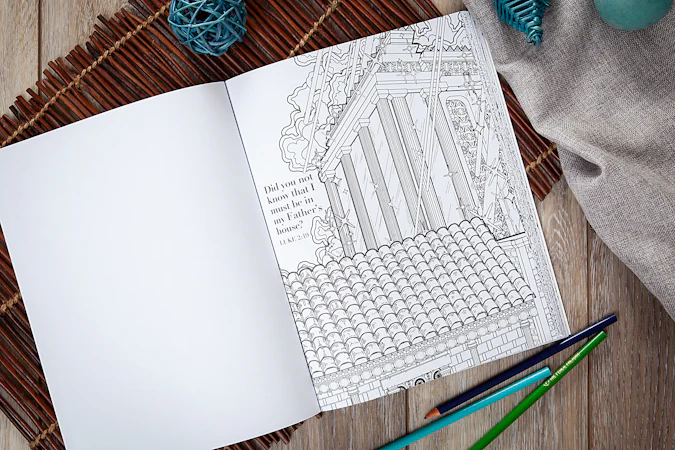 Did you not
know that I
must be in
my Father's
house?
LUKE 2:49